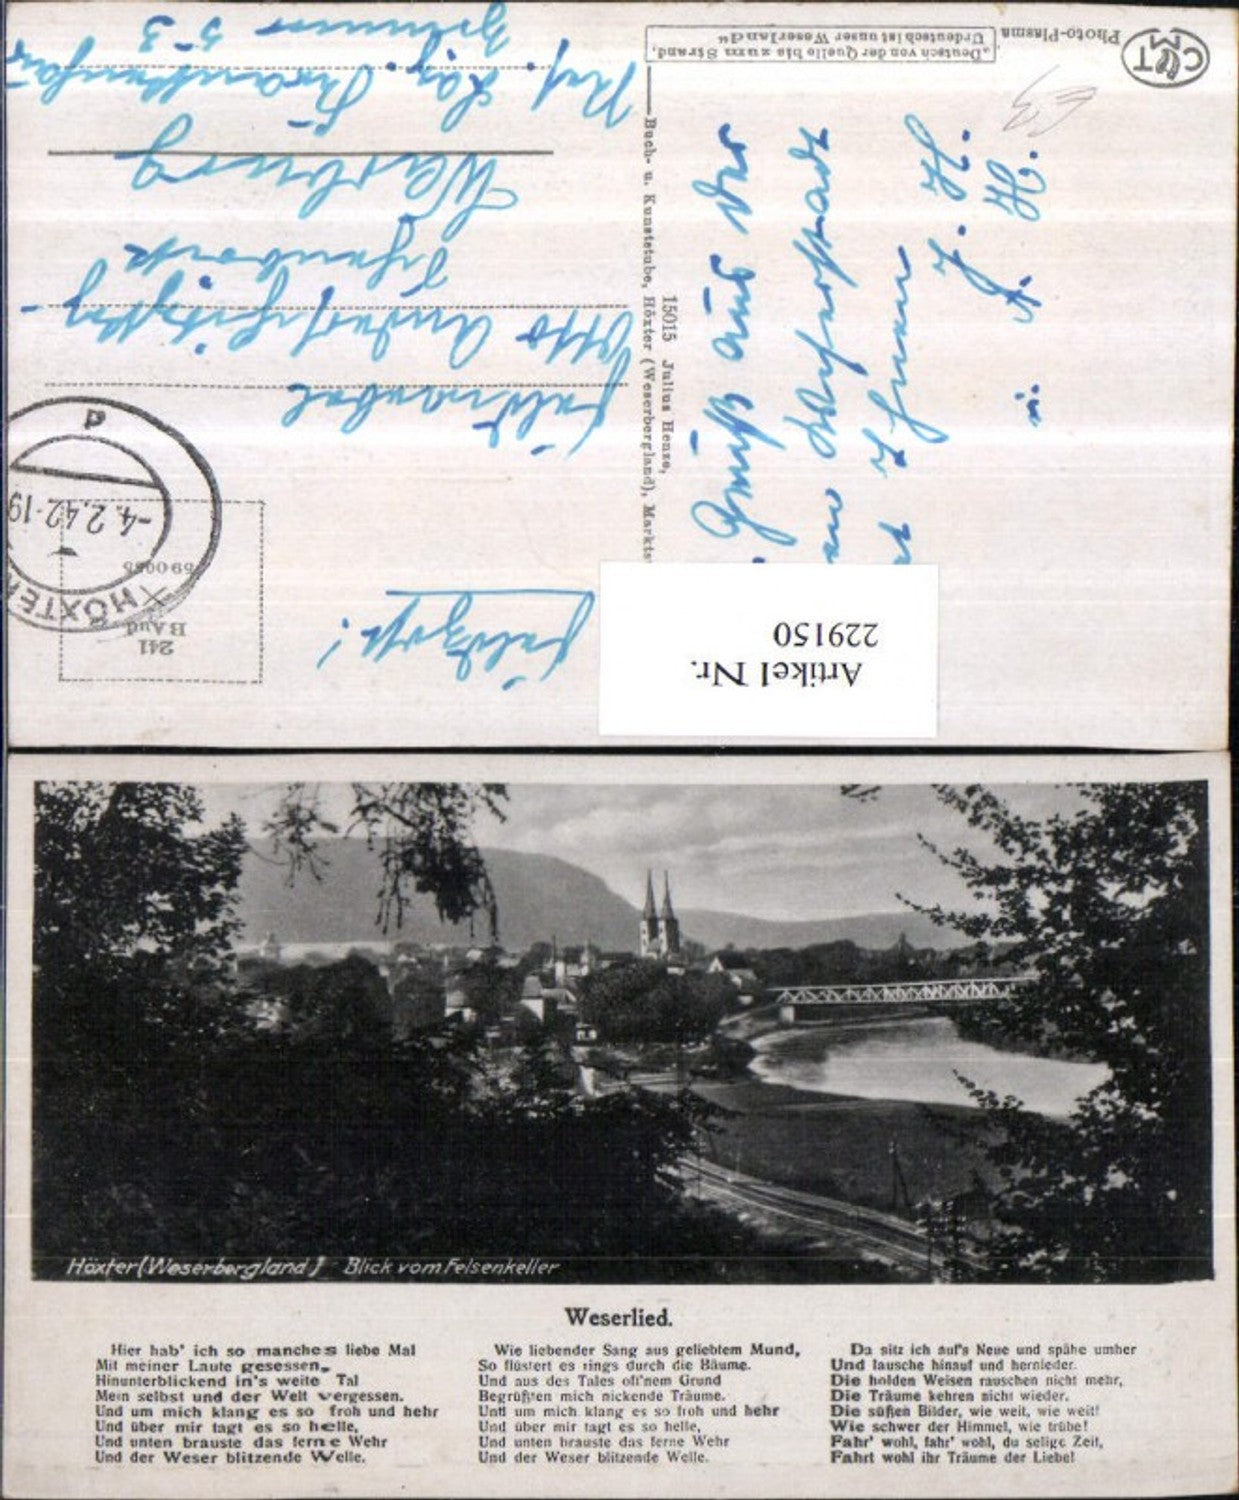 Feldpost!
Artikel Nr.
229150
241
BAud
HÖXTER
-4.2.42-19
d
Otto
Warburg
Res. Laz. Krankenhaus
Zimmer 53
15015 Julius Henze,
Buch- u. Kunststube, Höxter (Weserbergland), Markts
„Deutsch von der Quelle bis zum Strand,
Urdeutsch ist unser Weserland“
Photo-Plasma
CMT
Gruß aus der
Weserstadt
Höxter (Weserbergland) Blick vom Felsenkeller
Weserlied.
Hier hab' ich so manches liebe Mal
Mit meiner Laute gesessen,
Hinunterblickend in's weite Tal
Mein selbst und der Welt vergessen.
Und um mich klang es so froh und hehr
Und über mir tagt es so helle,
Und unten brauste das ferne Wehr
Und der Weser blitzende Welle.
Wie liebender Sang aus geliebtem Mund,
So flüstert es rings durch die Bäume.
Und aus des Tales off'nem Grund
Begrüßten mich nickende Träume.
Und um mich klang es so froh und hehr
Und über mir tagt es so helle,
Und unten brauste das ferne Wehr
Und der Weser blitzende Welle.
Da sitz ich auf's Neue und spähe umher
Und lausche hinauf und hernieder.
Die holden Weisen rauschen nicht mehr,
Die Träume kehren nicht wieder.
Die süßen Bilder, wie weit, wie weit!
Wie schwer der Himmel, wie trübe!
Fahr' wohl, fahr' wohl, du selige Zeit,
Fahrt wohl ihr Träume der Liebe!